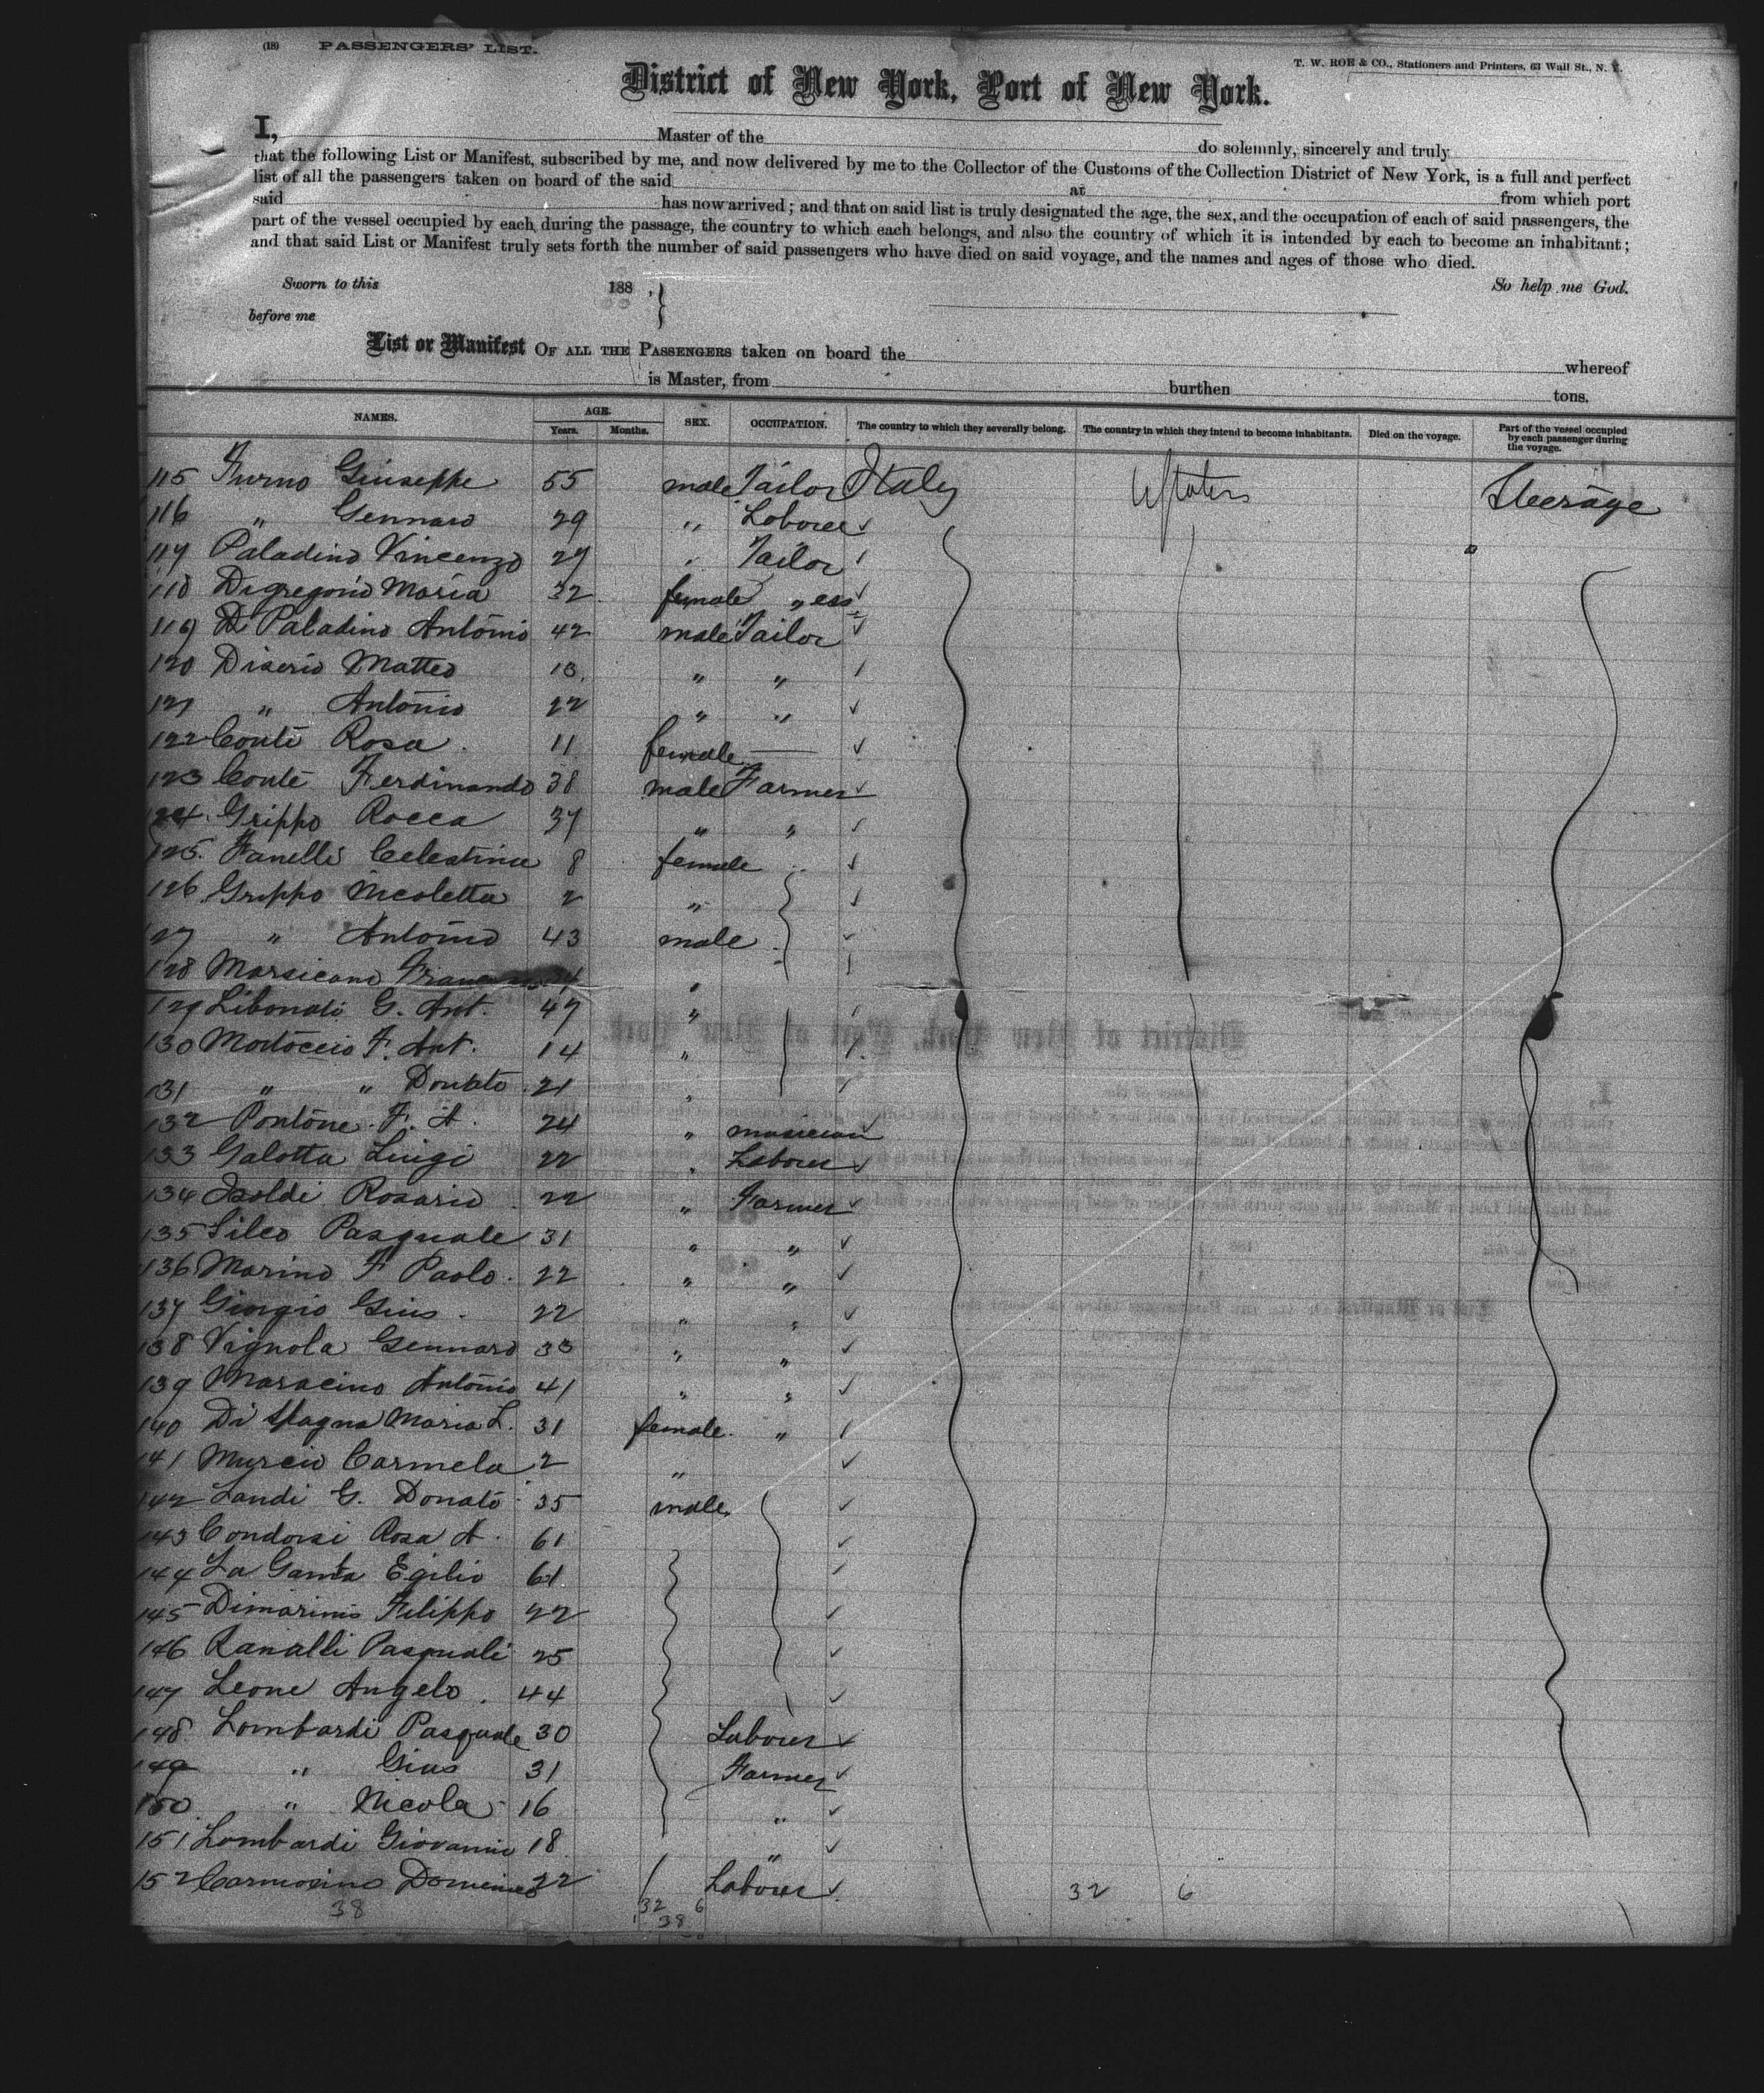 (18) PASSENGERS' LIST.
T. W. ROE & CO., Stationers and Printers, 63 Wall St., N. Y.
District of New York, Port of New York.
I, Master of the do solemnly, sincerely and truly
that the following List or Manifest, subscribed by me, and now delivered by me to the Collector of the Customs of the Collection District of New York, is a full and perfect
list of all the passengers taken on board of the said at from which port
said has now arrived; and that on said list is truly designated the age, the sex, and the occupation of each of said passengers, the
part of the vessel occupied by each during the passage, the country to which each belongs, and also the country of which it is intended by each to become an inhabitant;
and that said List or Manifest truly sets forth the number of said passengers who have died on said voyage, and the names and ages of those who died.
Sworn to this 188 , } So help me God.
before me
List or Manifest OF ALL THE PASSENGERS taken on board the whereof
is Master, from burthen tons.
NAMES. AGE. Years. Months. SEX. OCCUPATION. The country to which they severally belong. The country in which they intend to become inhabitants. Died on the voyage. Part of the vessel occupied by each passenger during the voyage.
115 Furno Giuseppe 55 male Tailor Italy UStates Steerage
116 " Gennaro 29 " Laborer
117 Paladino Vincenzo 27 " Tailor
118 Digregorio Maria 32 female " ess
119 D Paladino Antonio 42 male Tailor
120 Diserio Matteo 13 " "
121 " Antonio 22 " "
122 Conte Rosa 11 female
123 Conte Ferdinando 38 male Farmer
124 Grippo Rocca 37 " "
125 Fanelli Celestina 8 female
126 Grippo Nicoletta 2 "
127 " Antonio 43 male
128 Marsicano "
129 Libonati G. Ant. 47 "
130 Martoccio F. Ant. 14 "
131 " " Donato 21 "
132 Pontone F. A. 24 " musician
133 Galotta Luigi 22 " Laborer
134 Isoldi Rosario 22 " Farmer
135 Sileo Pasquale 31 " "
136 Marino F Paolo 22 " "
137 Giorgio Gius 22 " "
138 Vignola Gennaro 33 " "
139 Maracino Antonio 41 " "
140 Di Maria L. 31 female "
141 Murcio Carmela 2 "
142 Landi G. Donato 35 male
143 Condorsi Rosa A. 61
144 La Egilio 61
145 Dimarinis Filippo 22
146 Ranalli Pasquali 25
147 Leone Angelo 44
148 Lombardi Pasquale 30 Labourer
149 " Gius 31 Farmer
150 " Nicola 16 "
151 Lombardi Giovanni 18 "
152 Carmosino Domenico 22 Labourer 32 6
38 32 6
38